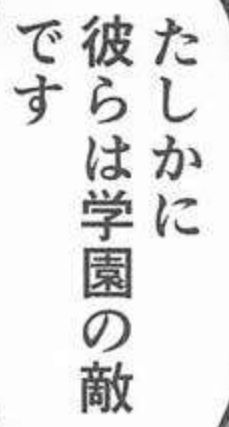 たしかに
彼らは学園の敵
です